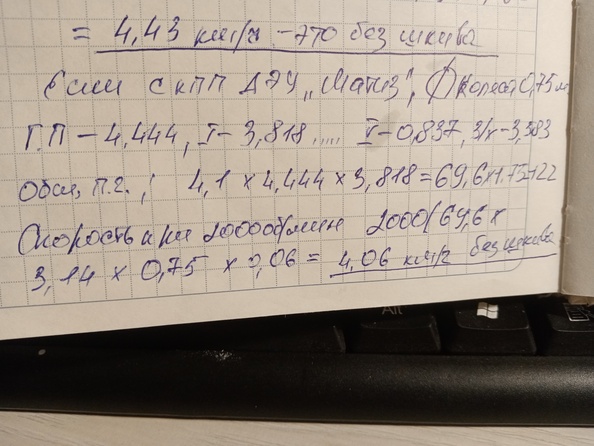 = 4,43 км/ч – это без шкива
Если с КПП ДЭУ „Матиз", Ø колеса 0,75 м
Г.П – 4,444, I – 3,818 ..... V – 0,837, з/х – 3,583
Общ. п.г. ; 4,1 × 4,444 × 3,818 = 69,6 × 1.75 = 122
Скорость при 2000 об/мин 2000/69,6 ×
3,14 × 0,75 × 0,06 = 4,06 км/ч без шкива
Alt